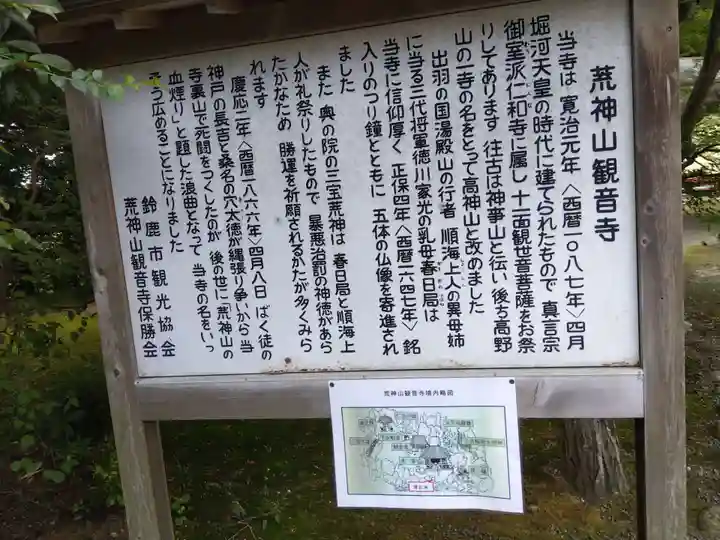 荒神山観音寺
当寺は 寛治元年〈西暦一〇八七年〉四月
堀河天皇の時代に建てられたもので 真言宗
御室派仁和寺に属し 十一面観世音菩薩をお祭
りしてあります 往古は神事山と伝い 後ち高野
山の一寺の名をとって高神山と改めました
出羽の国湯殿山の行者 順海上人の異母姉
に当る三代将軍徳川家光の乳母春日局は
当寺に信仰厚く 正保四年〈西暦一六四七年〉銘
入りのつり鐘とともに 五体の仏像を寄進され
ました
また 奥の院の三宝荒神は 春日局と順海上
人が礼祭りしたもので 暴悪治罰の神徳があら
たかなため 勝運を祈願されるかたが多くみら
れます
慶応二年〈西暦一八六六年〉四月八日 ばく徒の
神戸の長吉と桑名の穴太徳が縄張り争いから 当
寺裏山で死闘をつくしたのが 後の世に「荒神山の
血煙り」と題した浪曲となって 当寺の名をいっ
そう広めることになりました
鈴鹿市観光協会
荒神山観音寺保勝会
荒神山観音寺境内略図